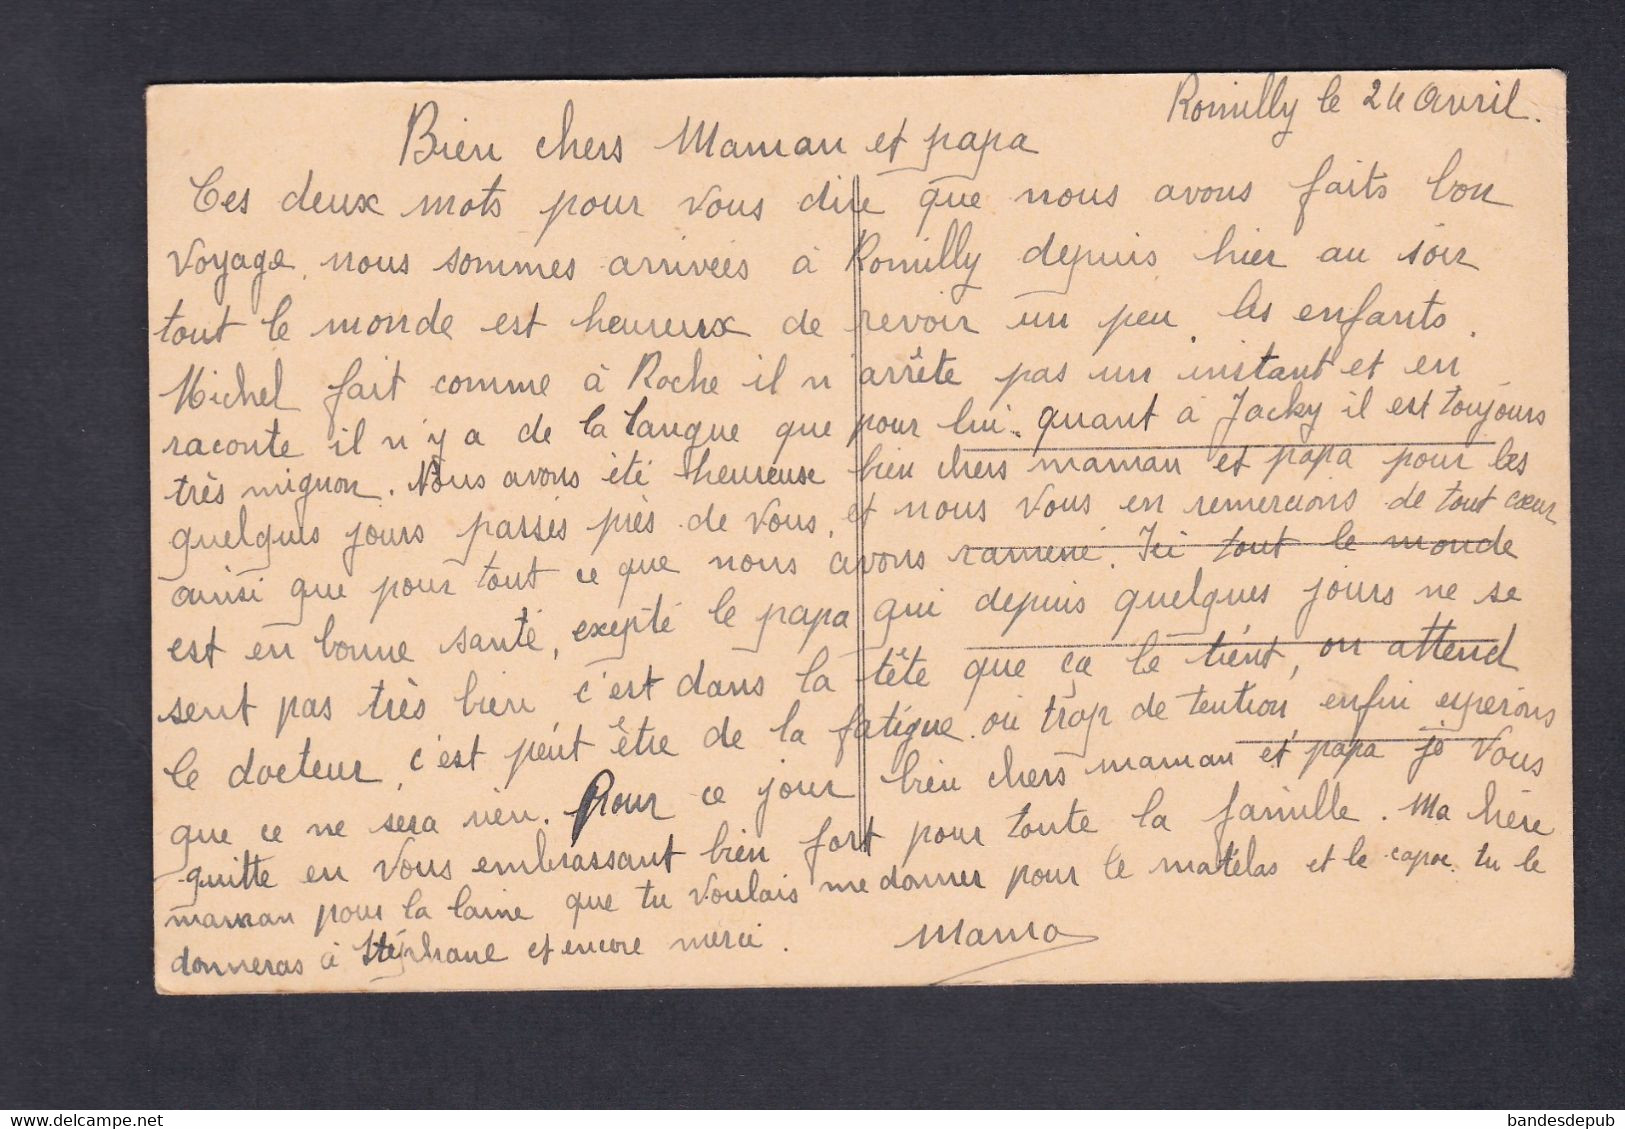 Romilly le 24 Avril.
Bien chers Maman et papa
Ces deux mots pour vous dire que nous avons faits bon
voyage, nous sommes arrivées à Romilly depuis hier au soir
tout le monde est heureux de revoir un peu les enfants.
Michel fait comme à Roche il n'arrête pas un instant et en
raconte il n'y a de la langue que pour lui. quant à Jacky il est toujours
très mignon. Nous avons été heureuse bien chers maman et papa pour les
quelques jours passés près de vous, et nous vous en remercions de tout cœur
ainsi que pour tout ce que nous avons ramené. Ici tout le monde
est en bonne santé, excepté le papa qui depuis quelques jours ne se
sent pas très bien, c'est dans la tête que ça le tient, on attend
le docteur, c'est peut être de la fatigue ou trop de tention enfin esperons
que ce ne sera rien. Pour ce jour bien chers maman et papa je vous
quitte en vous embrassant bien fort pour toute la famille. Ma
maman pour la laine que tu voulais me donner pour le matelas et le tu le
donneras à Stéphane et encore merci.